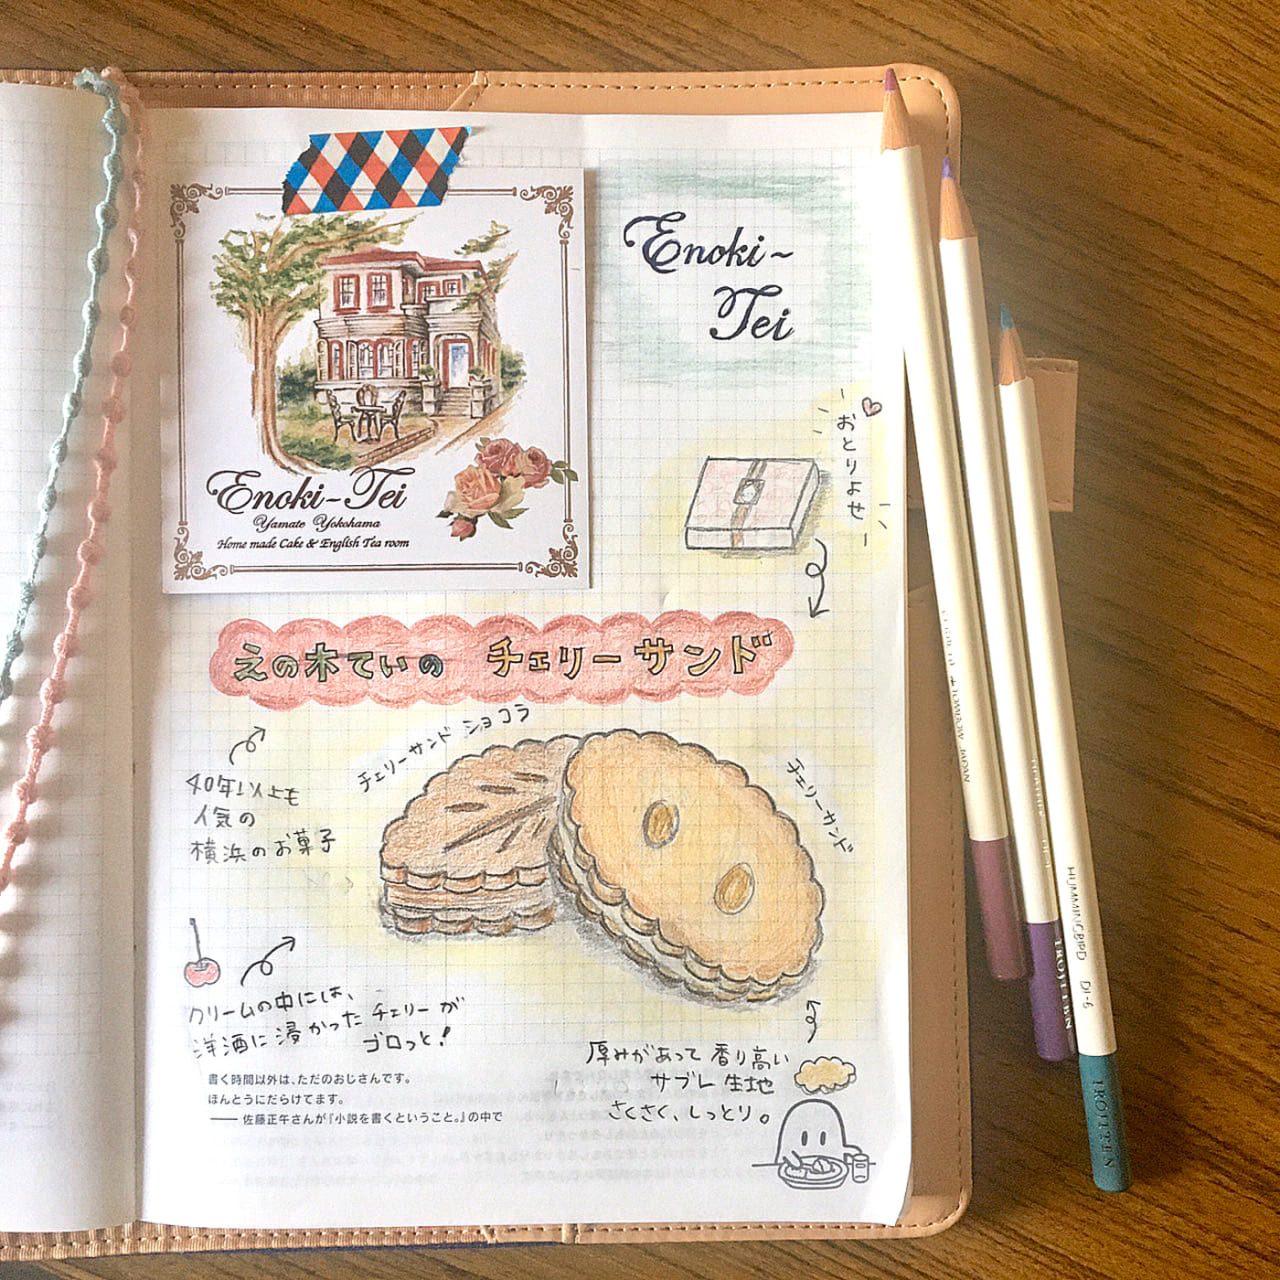 Enoki-Tei
Yamate Yokohama
Home made Cake & English Tea room
Enoki-
Tei
おとりよせ
えの木ていの チェリーサンド
チェリーサンド ショコラ
チェリーサンド
40年以上も
人気の
横浜のお菓子
クリームの中には、
洋酒に浸かった チェリーが
ゴロっと!
厚みがあって 香り高い
サブレ 生地
さくさく、しっとり。
書く時間以外は、ただのおじさんです。
ほんとうにだらけてます。
—— 佐藤正午さんが『小説を書くということ。』の中で
TOMBOW JAPAN
IROJITEN
HUMMINGBIRD DI-6
IROJITEN